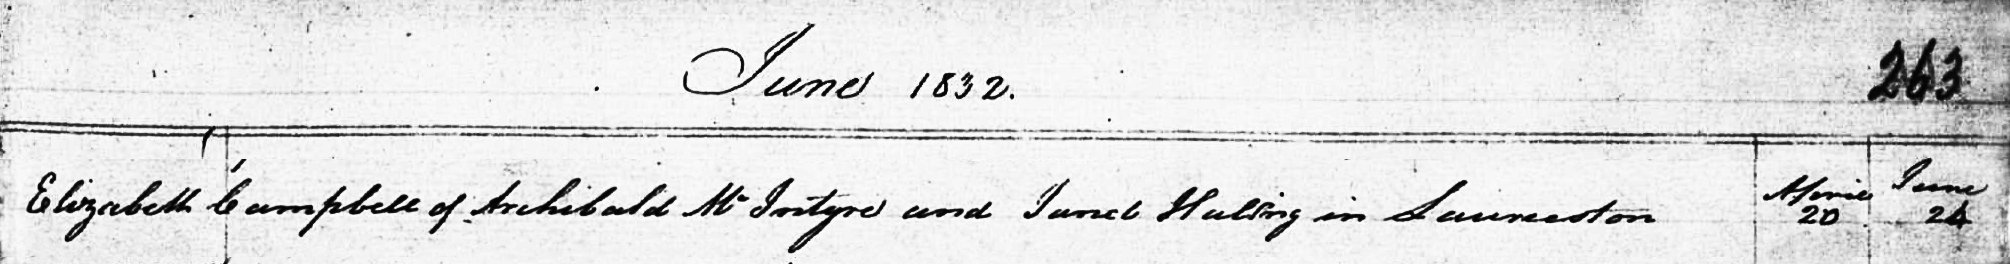 June 1832. 263
Elizabeth Campbell of Archibald Mc Intyre and Janet Huling in Launceston April 20 June 24